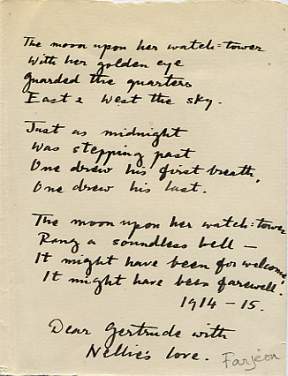 The moon upon her watch-tower
With her golden eye
Guarded the quarters
East & West the sky.
Just as midnight
Was stepping past
One drew his first breath,
One drew his last.
The moon upon her watch-tower
Rang a soundless bell —
It might have been for welcome,
It might have been farewell.
1914-15.
Dear Gertrude with
Nellie's love. Farjeon